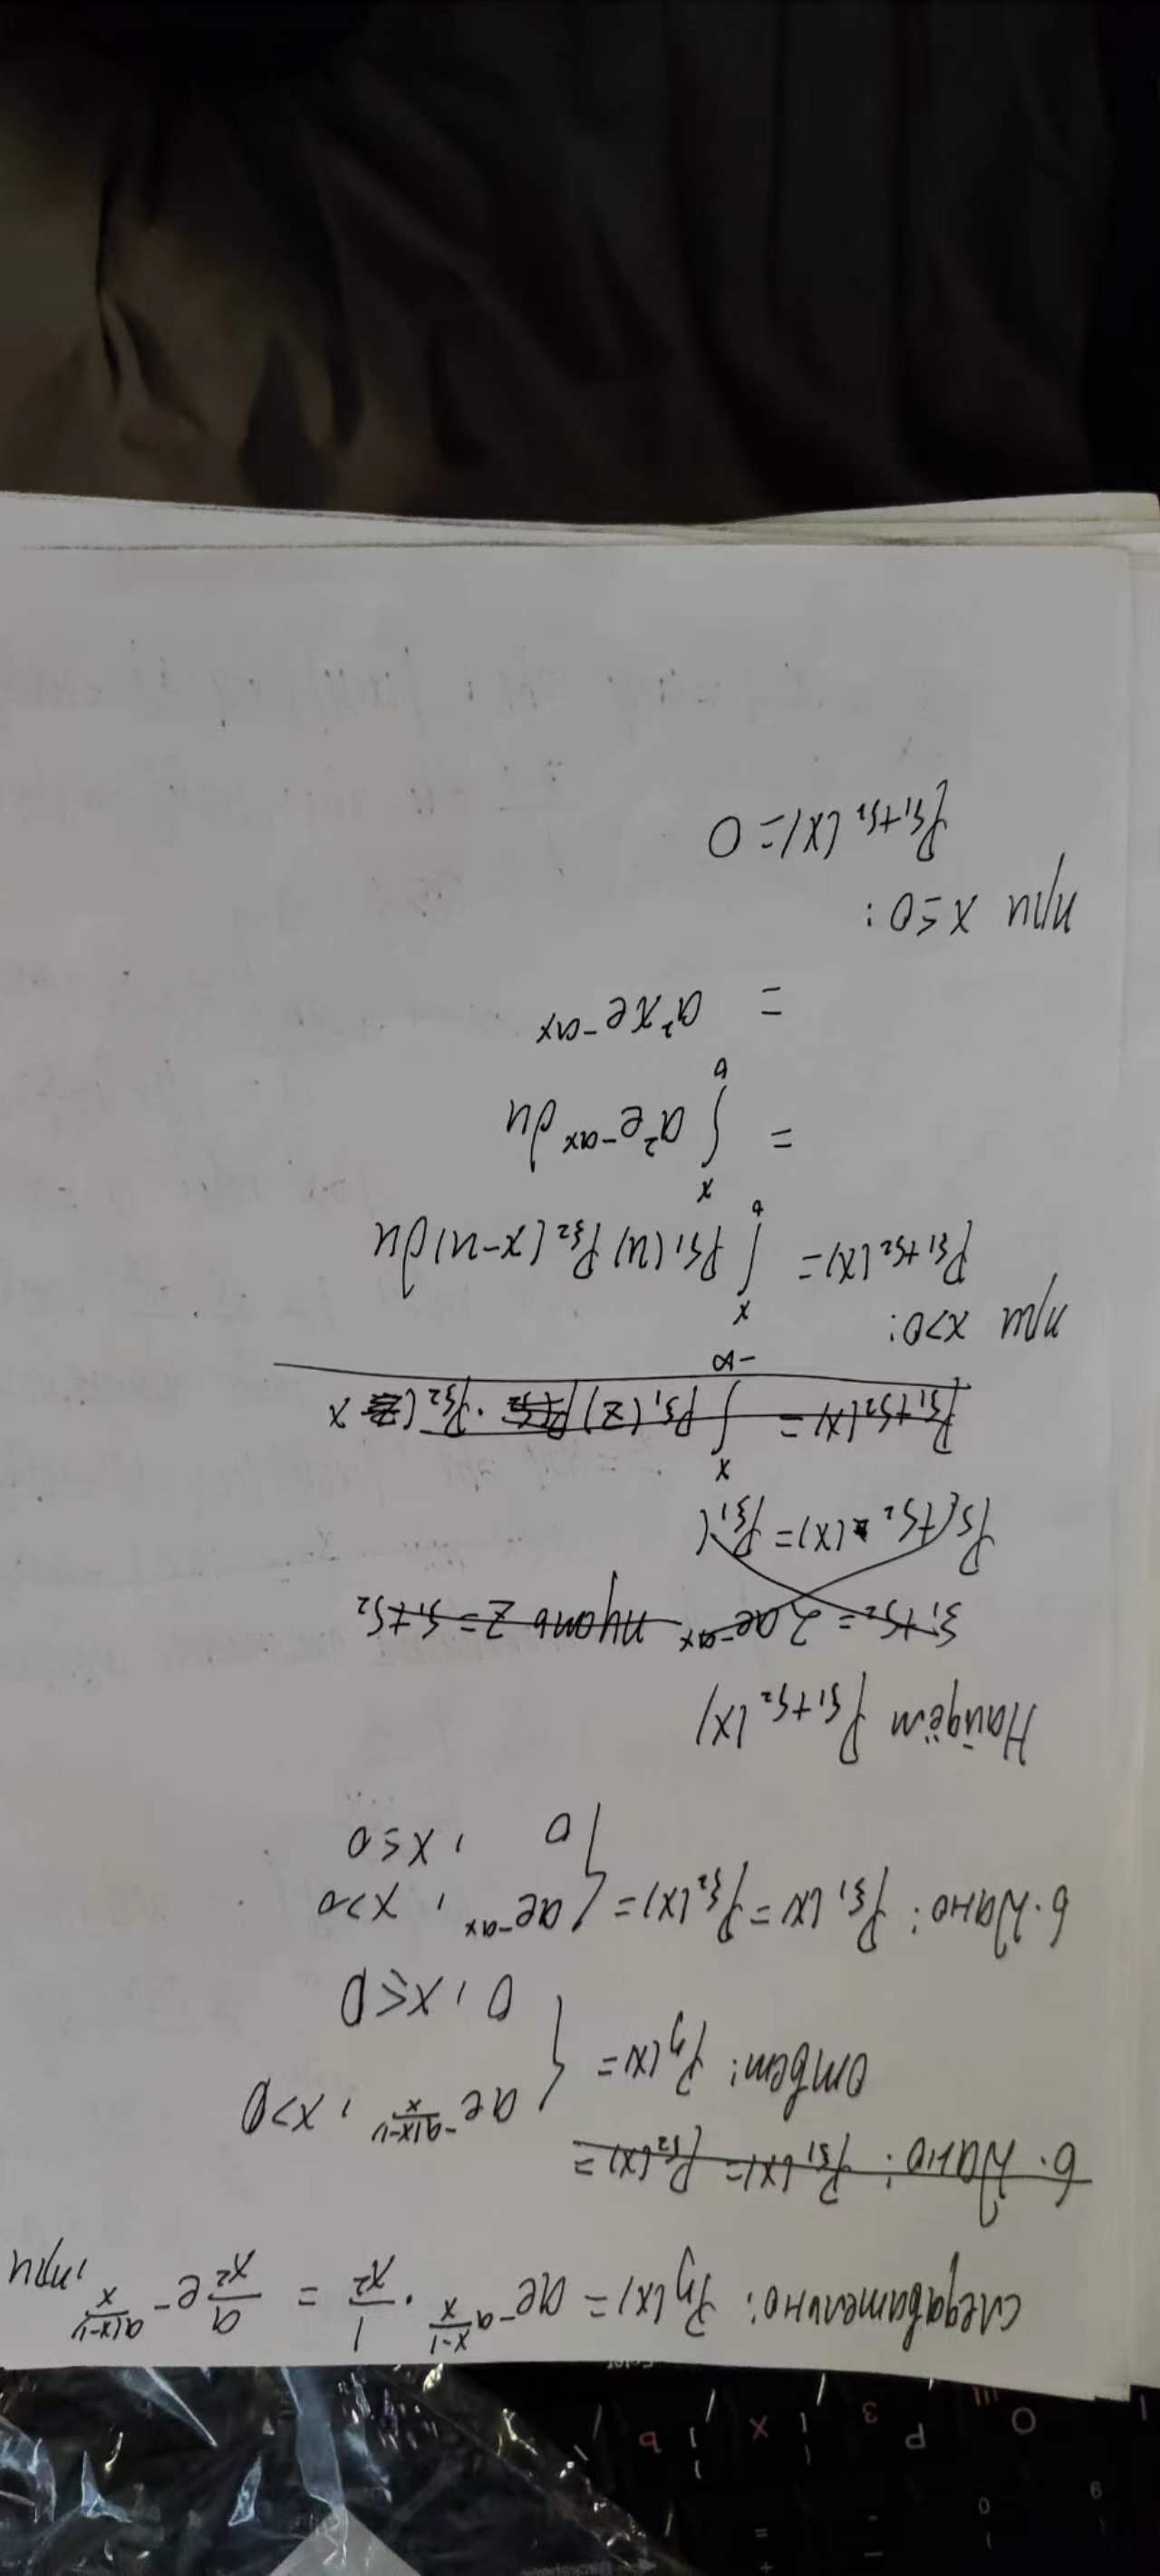 следавательно: P_η(x) = ae^{-a\frac{x-1}{x}} · \frac{1}{x²} = \frac{a}{x²} e^{-\frac{a(x-1)}{x}}, при
6. Дано: P_{ξ₁}(x) = P_{ξ₂}(x) =
ответ: P_η(x) = { ae^{-\frac{a(x-1)}{x}}, x>0
0, x≤0
6. Дано: P_{ξ₁}(x) = P_{ξ₂}(x) = { ae^{-ax}, x>0
0, x≤0
Найдём P_{ξ₁+ξ₂}(x)
ξ₁+ξ₂ = 2ae^{-ax} пусть z = ξ₁+ξ₂
P_{ξ₁+ξ₂}(x) = P_{ξ₁}(
P_{ξ₁+ξ₂}(x) = ∫_{-∞}^{x} P_{ξ₁}(z) · P_{ξ₂}( x
при x>0:
P_{ξ₁+ξ₂}(x) = ∫_0^x P_{ξ₁}(u) P_{ξ₂}(x-u) du
= ∫_0^x a²e^{-ax} du
= a²xe^{-ax}
при x≤0:
P_{ξ₁+ξ₂}(x) = 0